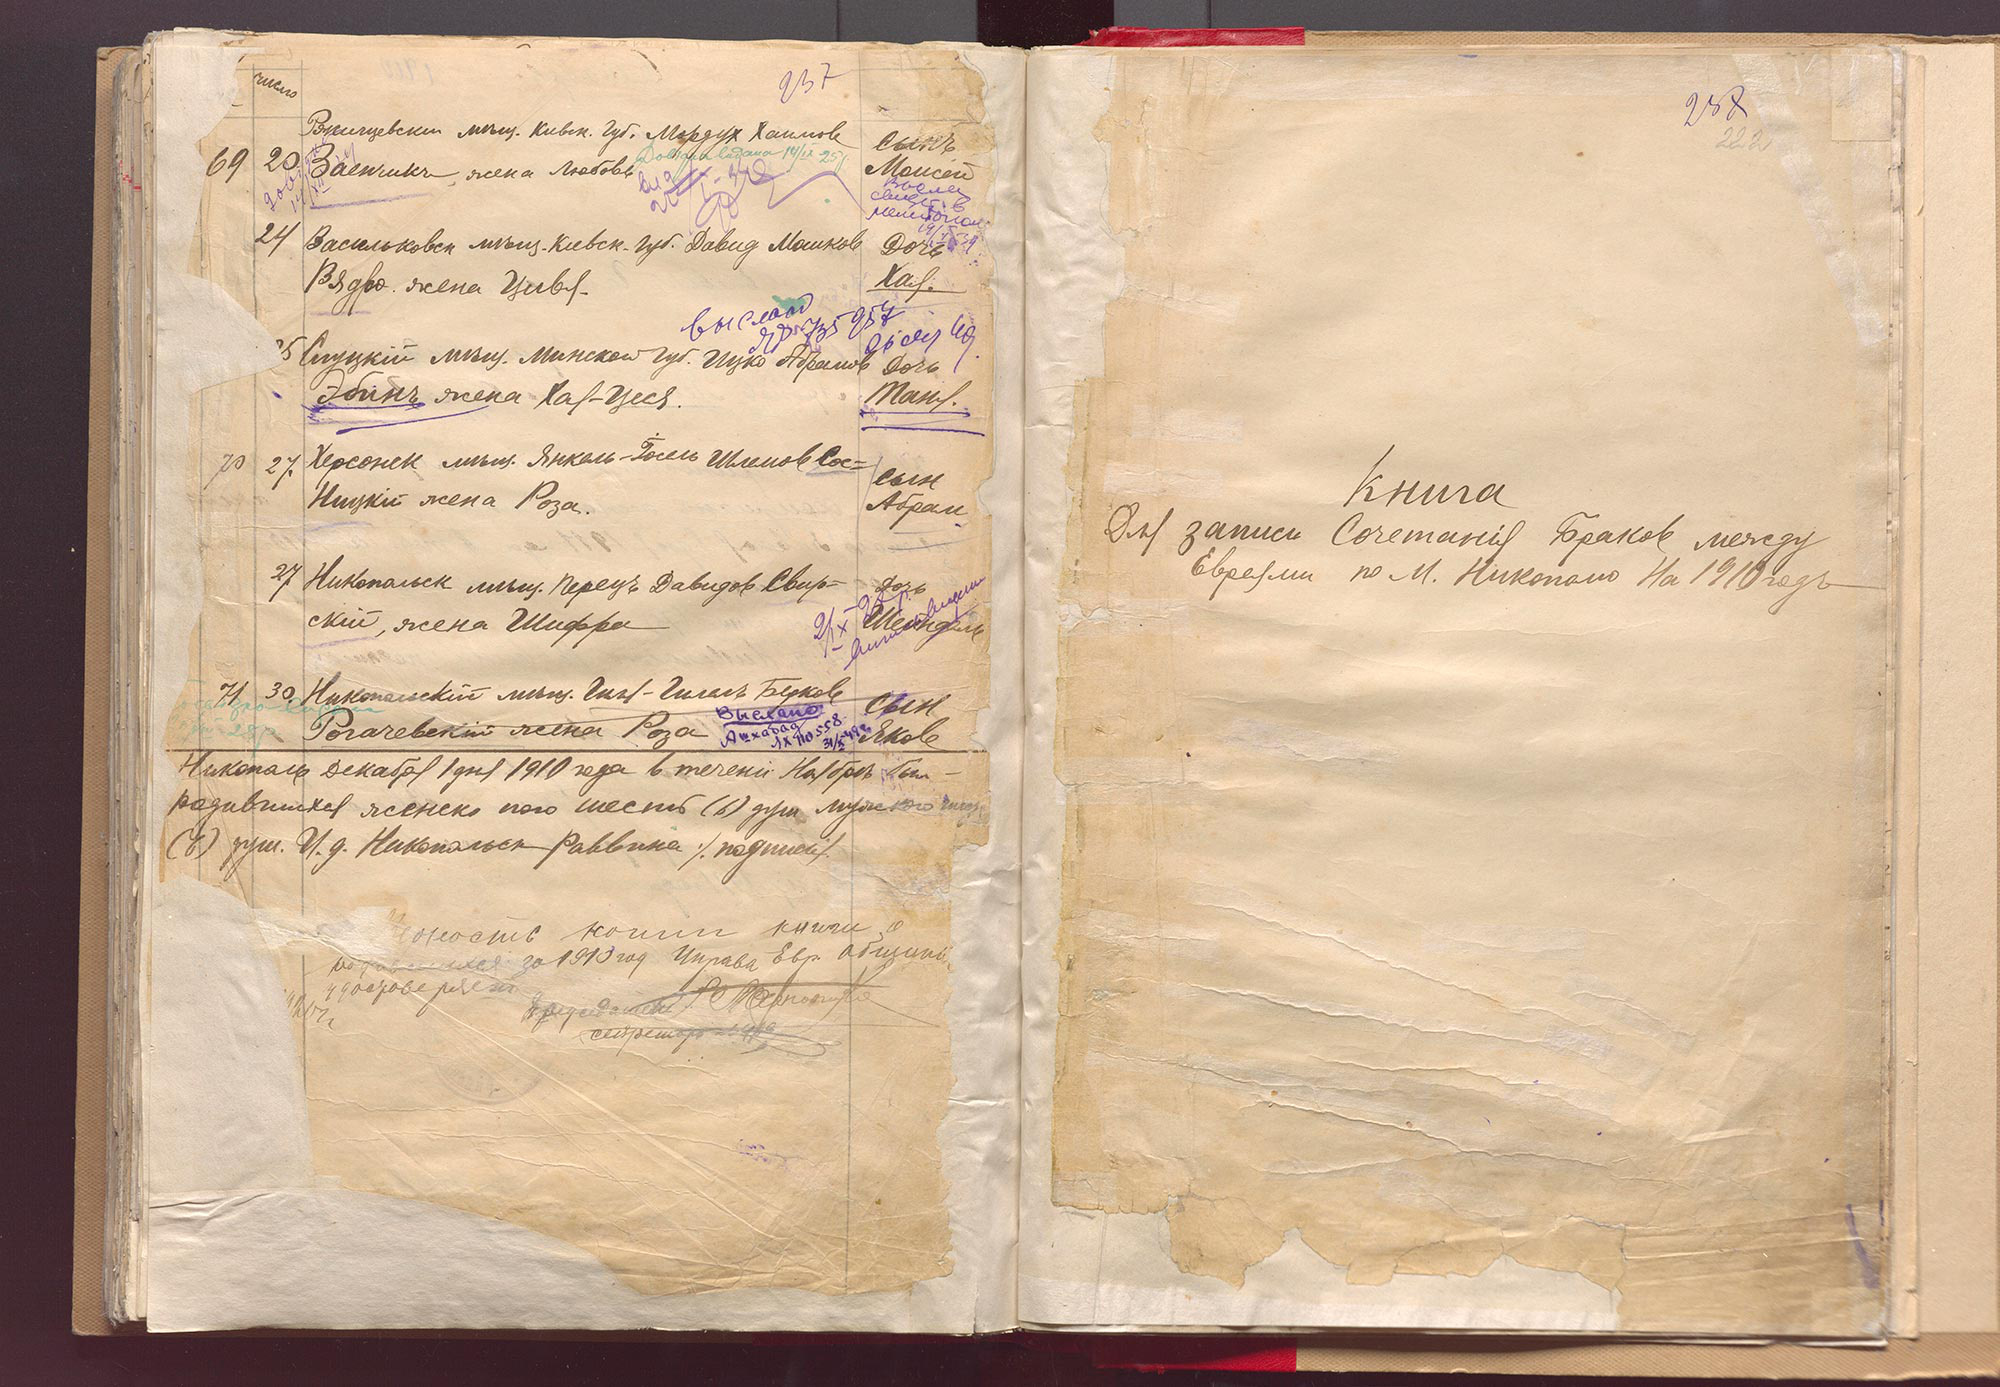 число
237
Ржищевскій мѣщ. Киевск. Губ. Мордух Хаимов
69 20 Заенчикъ, жена Любовь
Сынъ
Моисей
24 Васильковск мѣщ. Киевск. Губ. Давид Мошков
Вядро. жена Цивя.
Дочь
Хая.
выслан
25 Слуцкій мѣщ. Минской Губ. Ицко Абрамов
Эбинъ жена Хая-Цеся.
Дочь
Таня.
70 27 Херсонск мѣщ. Янкель-Іосель Шлемов Сос=
ницкій жена Роза.
Сын
Абрам
27 Никопольск мѣщ. Перецъ Давидов Свир=
скій, жена Шифра
Дочь
Шейндель
71 30 Никопольскій мѣщ.
Рогачевскій жена Роза
Выслано
Ашхабад
Сын
Яков
Никополь Декабря 1 дня 1910 года в теченіи Ноября был-
родившихся женско пола шесть (6) душ мужского
душ. И. д. Никопольск Раввина /. подпись/.
копии книги о
за 1910 год Управа Евр. общины
удостоверяет
Председатель
секретарь
238
222
Книга
Для записи Сочетанія Браков между
Евреями по М. Никополю На 1910 годъ